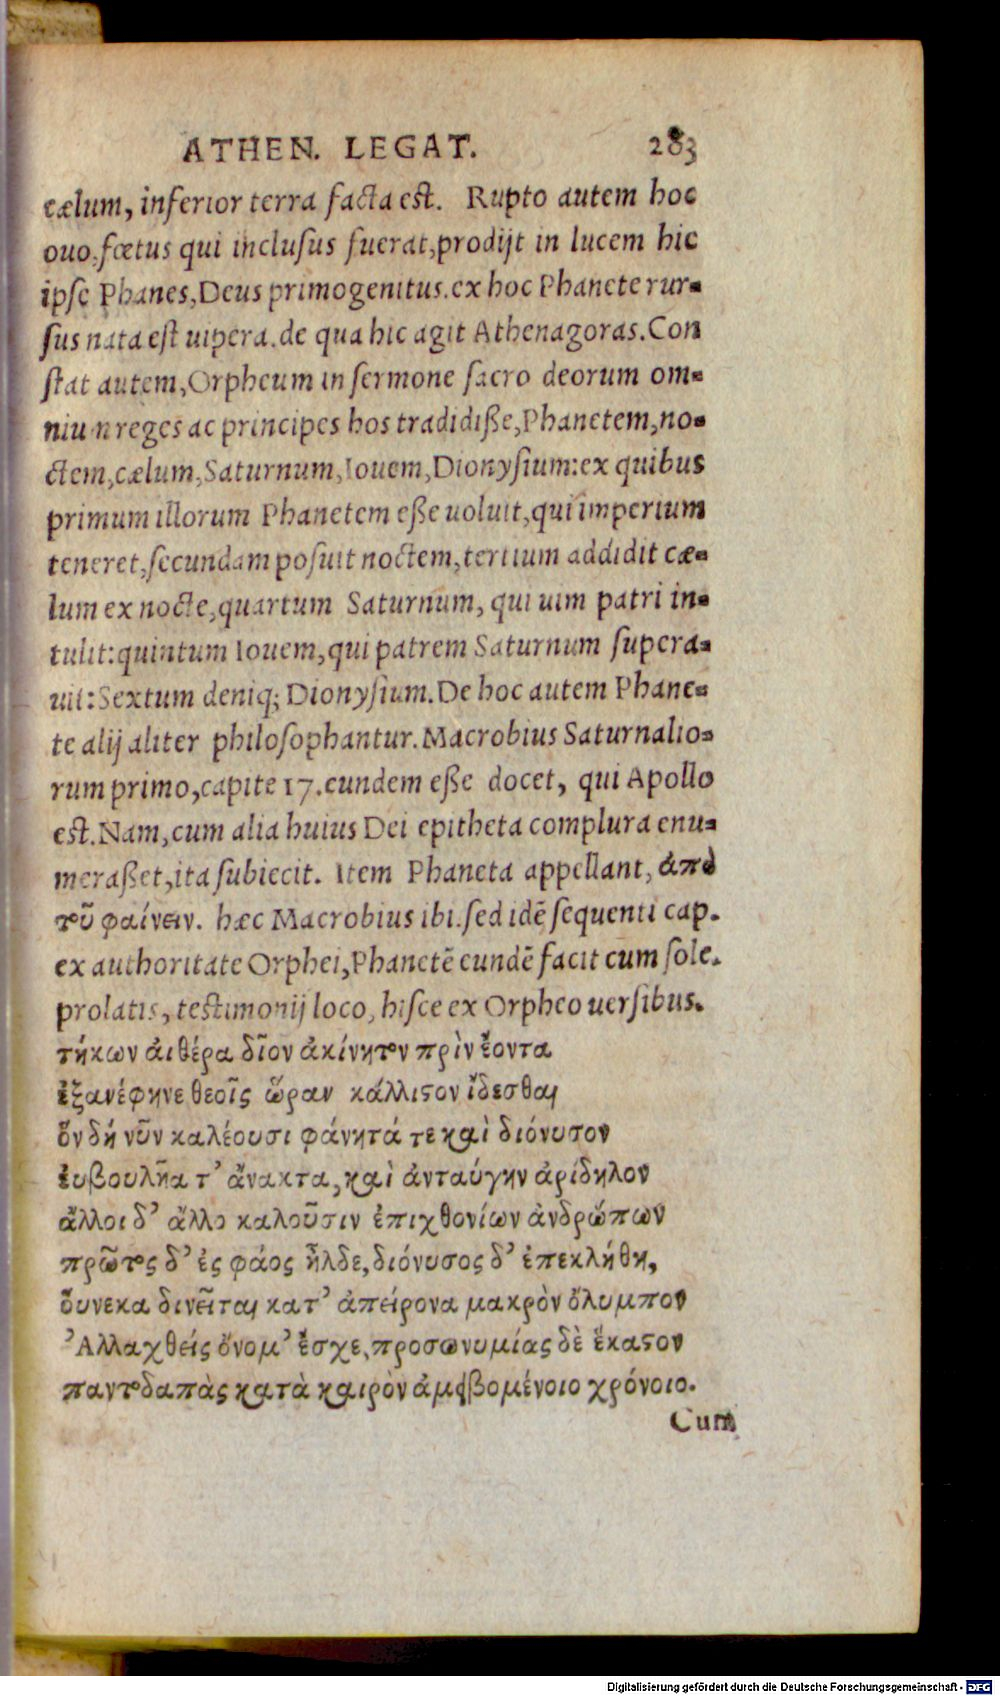 ATHEN. LEGAT. 283
cælum, inferior terra facta est. Rupto autem hoc
ouo, fœtus qui inclusus fuerat, prodijt in lucem hic
ipse Phanes, Deus primogenitus. ex hoc Phanete rur-
sus nata est uipera. de qua hic agit Athenagoras. Con
stat autem, Orpheum in sermone sacro deorum om-
nium reges ac principes hos tradidiße, Phanetem, no-
ctem, cælum, Saturnum, Iouem, Dionysium: ex quibus
primum illorum Phanetem eße uoluit, qui imperium
teneret, secundam posuit noctem, tertium addidit cæ-
lum ex nocte, quartum Saturnum, qui uim patri in-
tulit: quintum Iouem, qui patrem Saturnum supera-
uit: Sextum deniq; Dionysium. De hoc autem Phane-
te alij aliter philosophantur. Macrobius Saturnalio-
rum primo, capite 17. eundem eße docet, qui Apollo
est. Nam, cum alia huius Dei epitheta complura enu-
meraßet, ita subiecit. Item Phaneta appellant, ἀπὸ
τοῦ φαίνειν. hæc Macrobius ibi. sed idē sequenti cap.
ex authoritate Orphei, Phanetē eundē facit cum sole.
prolatis, testimonij loco, hisce ex Orpheo uersibus.
τήκων αἰθέρα δῖον ἀκίνητον πρὶν ἔοντα
ἐξανέφηνε θεοῖς ὥραν κάλλιϛον ἴδεσθαι
ὃν δή νῦν καλέουσι φάνητά τε καὶ διόνυσον
ἐυβουλῆα τ’ ἄνακτα, καὶ ἀνταύγην ἀρίδηλον
ἄλλοι δ’ ἄλλο καλοῦσιν ἐπιχθονίων ἀνδρώπων
πρῶτος δ’ ἐς φάος ἦλδε, διόνυσος δ’ ἐπεκλήθη,
οὕνεκα δινεῖται κατ’ ἀπείρονα μακρὸν ὄλυμπον
Ἀλλαχθείς ὄνομ’ ἔσχε, προσωνυμίας δὲ ἕκαϛον
παντοδαπὰς κατὰ καιρὸν ἀμειβομένοιο χρόνοιο.
Cum
Digitalisierung gefördert durch die Deutsche Forschungsgemeinschaft - DFG